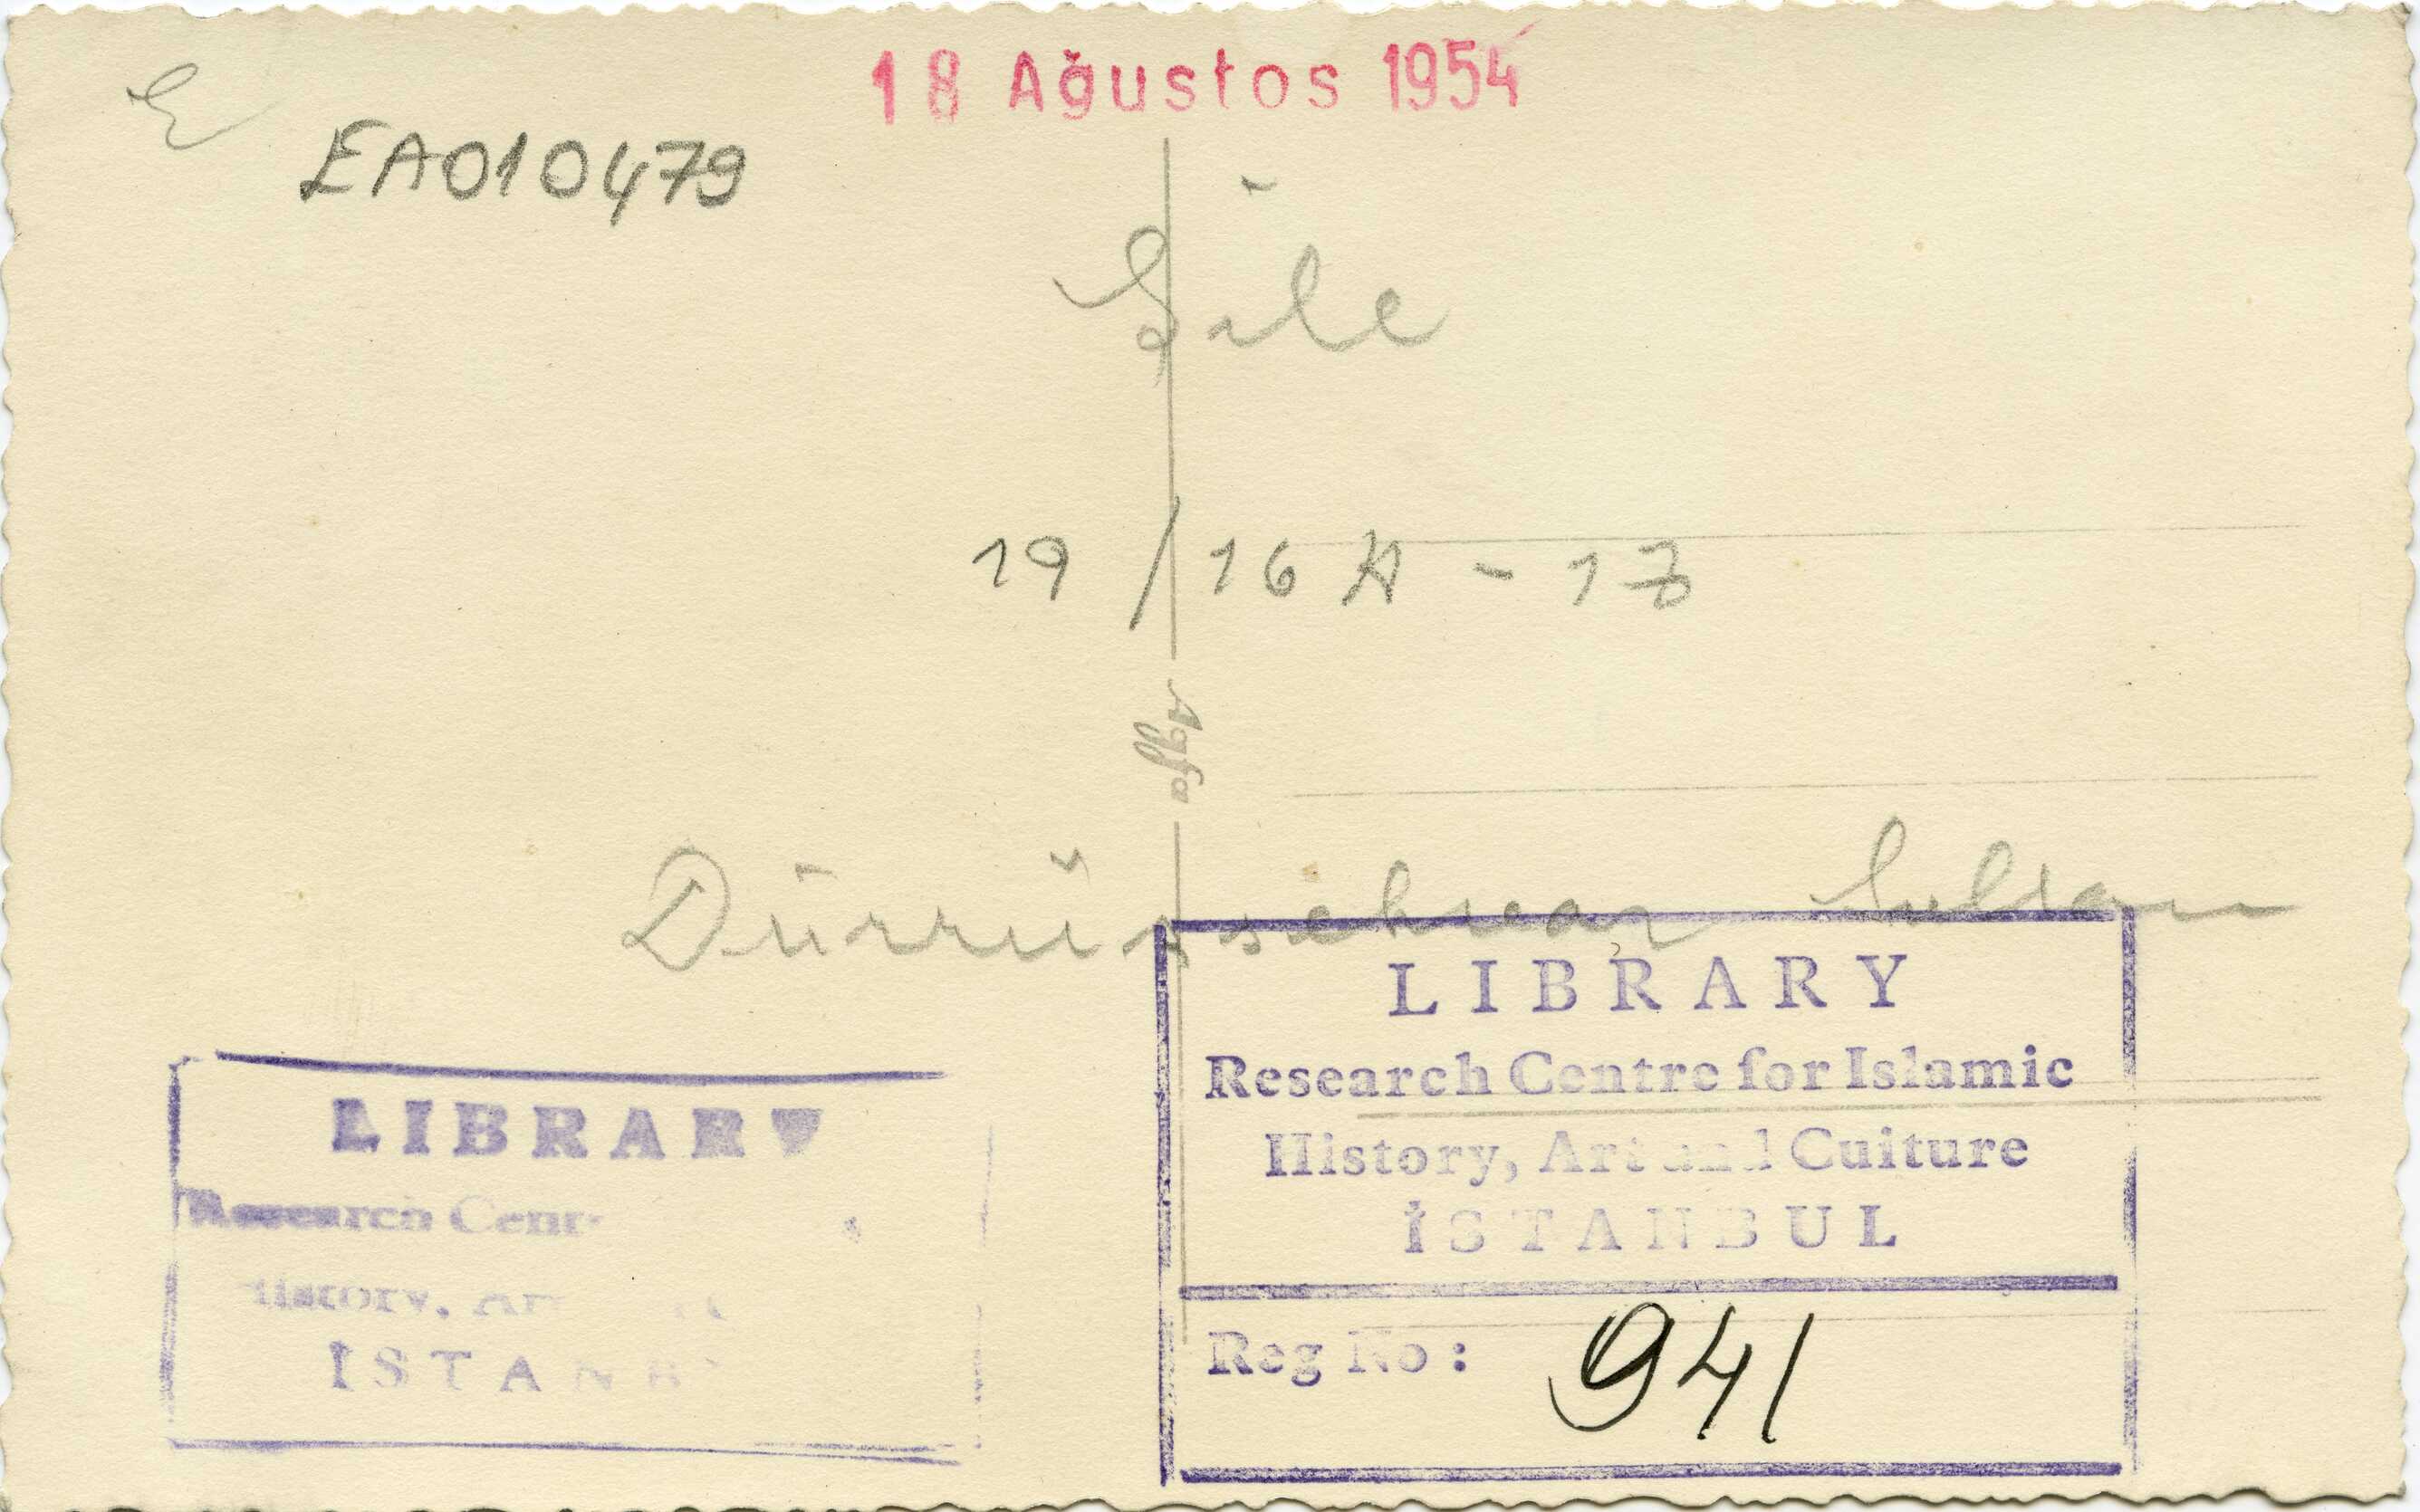 18 Ağustos 1954
E
EA010479
Şile
19/16A-17
Agfa
Dürrüşşehvar Sultan
LIBRARY
Research Centre for Islamic
History, Art and Culture
İSTANBUL
Reg No: 941
LIBRARY
Research Cent
History, Ar
İSTANB